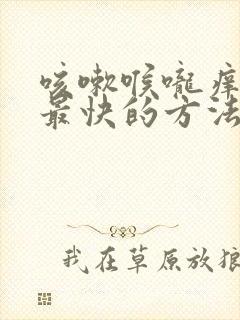 咳嗽喉咙痒
最快的方法
我在草原放狼